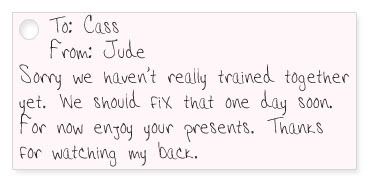 To: Cass
From: Jude
Sorry we haven't really trained together
yet. We should fix that one day soon.
For now enjoy your presents. Thanks
for watching my back.